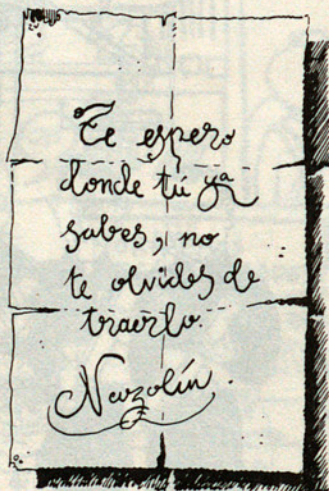 Te espero
donde tú ya
sabes, no
te olvides de
traerlo.
Narzolín.